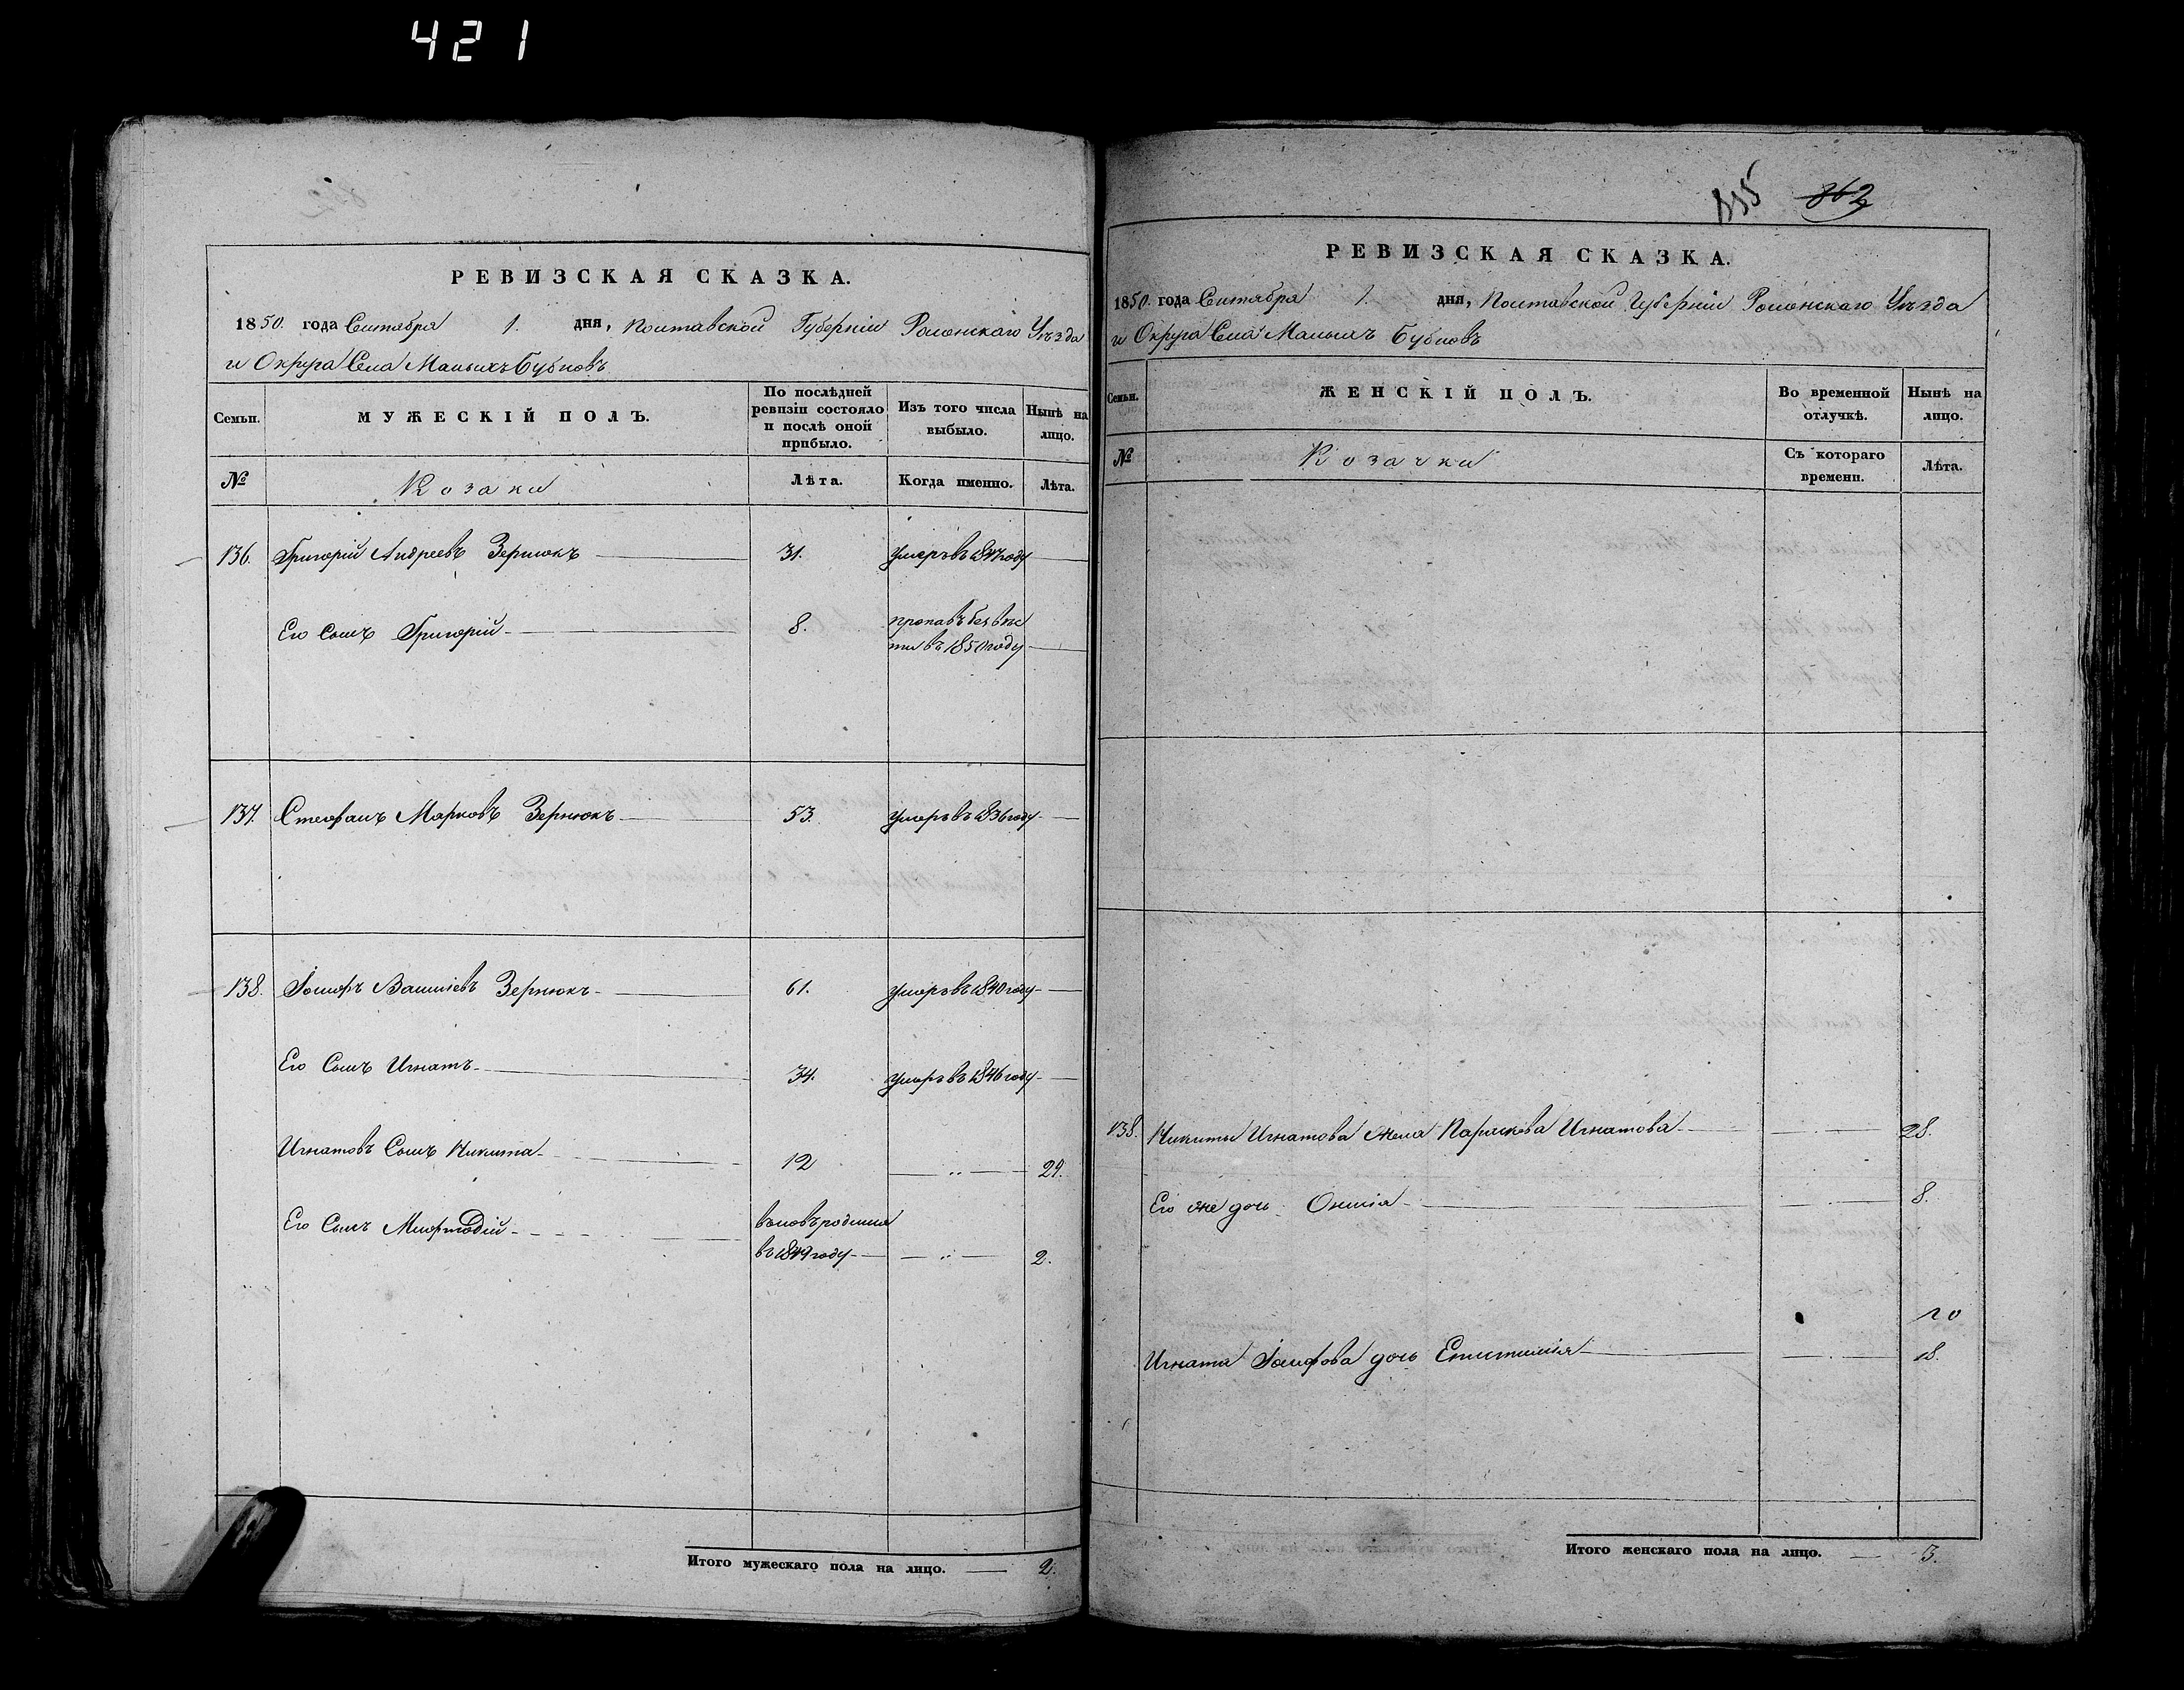 421
РЕВИЗСКАЯ СКАЗКА.
1850. года Сентября 1. дня, Полтавской Губерніи Роменскаго Уѣзда
и Округа Села Малыхъ Бубновъ
Семьи.
МУЖЕСКІЙ ПОЛЪ.
По послѣдней ревизіи состояло и послѣ оной прибыло.
Изъ того числа выбыло.
Нынѣ на лицо.
№
Козаки
Лѣта.
Когда именно.
Лѣта.
136. Григорій Андреевъ Зернюкъ 31. умеръ въ 1847 году
Его Сынъ Григорій 8. пропавъ безъ вѣс
ти въ 1850 году
137. Стефанъ Марковъ Зернюкъ 53. умеръ въ 1836 году
138. Іосифъ Василіевъ Зернюкъ 61. умеръ въ 1840 году
Его Сынъ Игнатъ 34. умеръ въ 1846 году
Игнатовъ Сынъ Никита 12 29.
Его Сынъ Мефтодій вновь родился
въ 1849 году 2.
Итого мужескаго пола на лицо. 2.
862
РЕВИЗСКАЯ СКАЗКА.
1850. года Сентября 1. дня, Полтавской Губерніи Роменскаго Уѣзда
и Округа Села Малыхъ Бубновъ
Семьи.
ЖЕНСКІЙ ПОЛЪ.
Во временной отлучкѣ.
Нынѣ на лицо.
№
Козачки
Съ котораго времени.
Лѣта.
138. Никиты Игнатова жена Параскева Игнатова 28.
Его же дочь Оксинія 8.
20
Игната Іосифова дочь Епистимія 18.
Итого женскаго пола на лицо. 3.